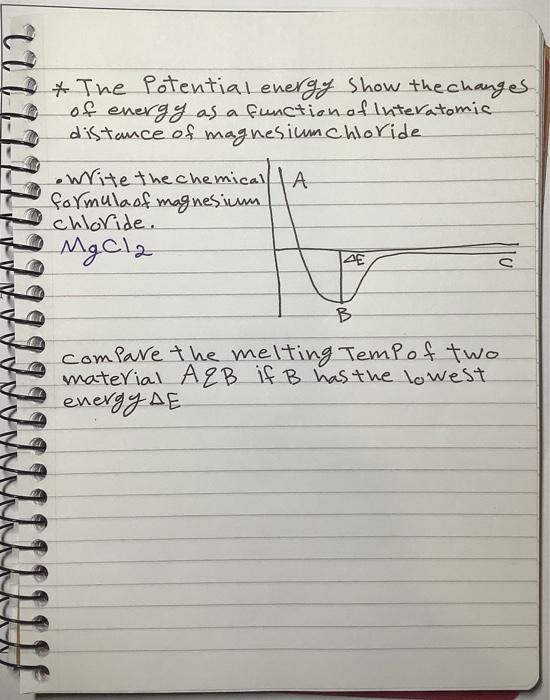 * The Potential energy show the changes
of energy as a function of Interatomic
distance of magnesium chloride
• write the chemical
formula of magnesium
chloride.
MgCl2
A
ΔE
C
B
compare the melting Temp of two
material A & B if B has the lowest
energy ΔE